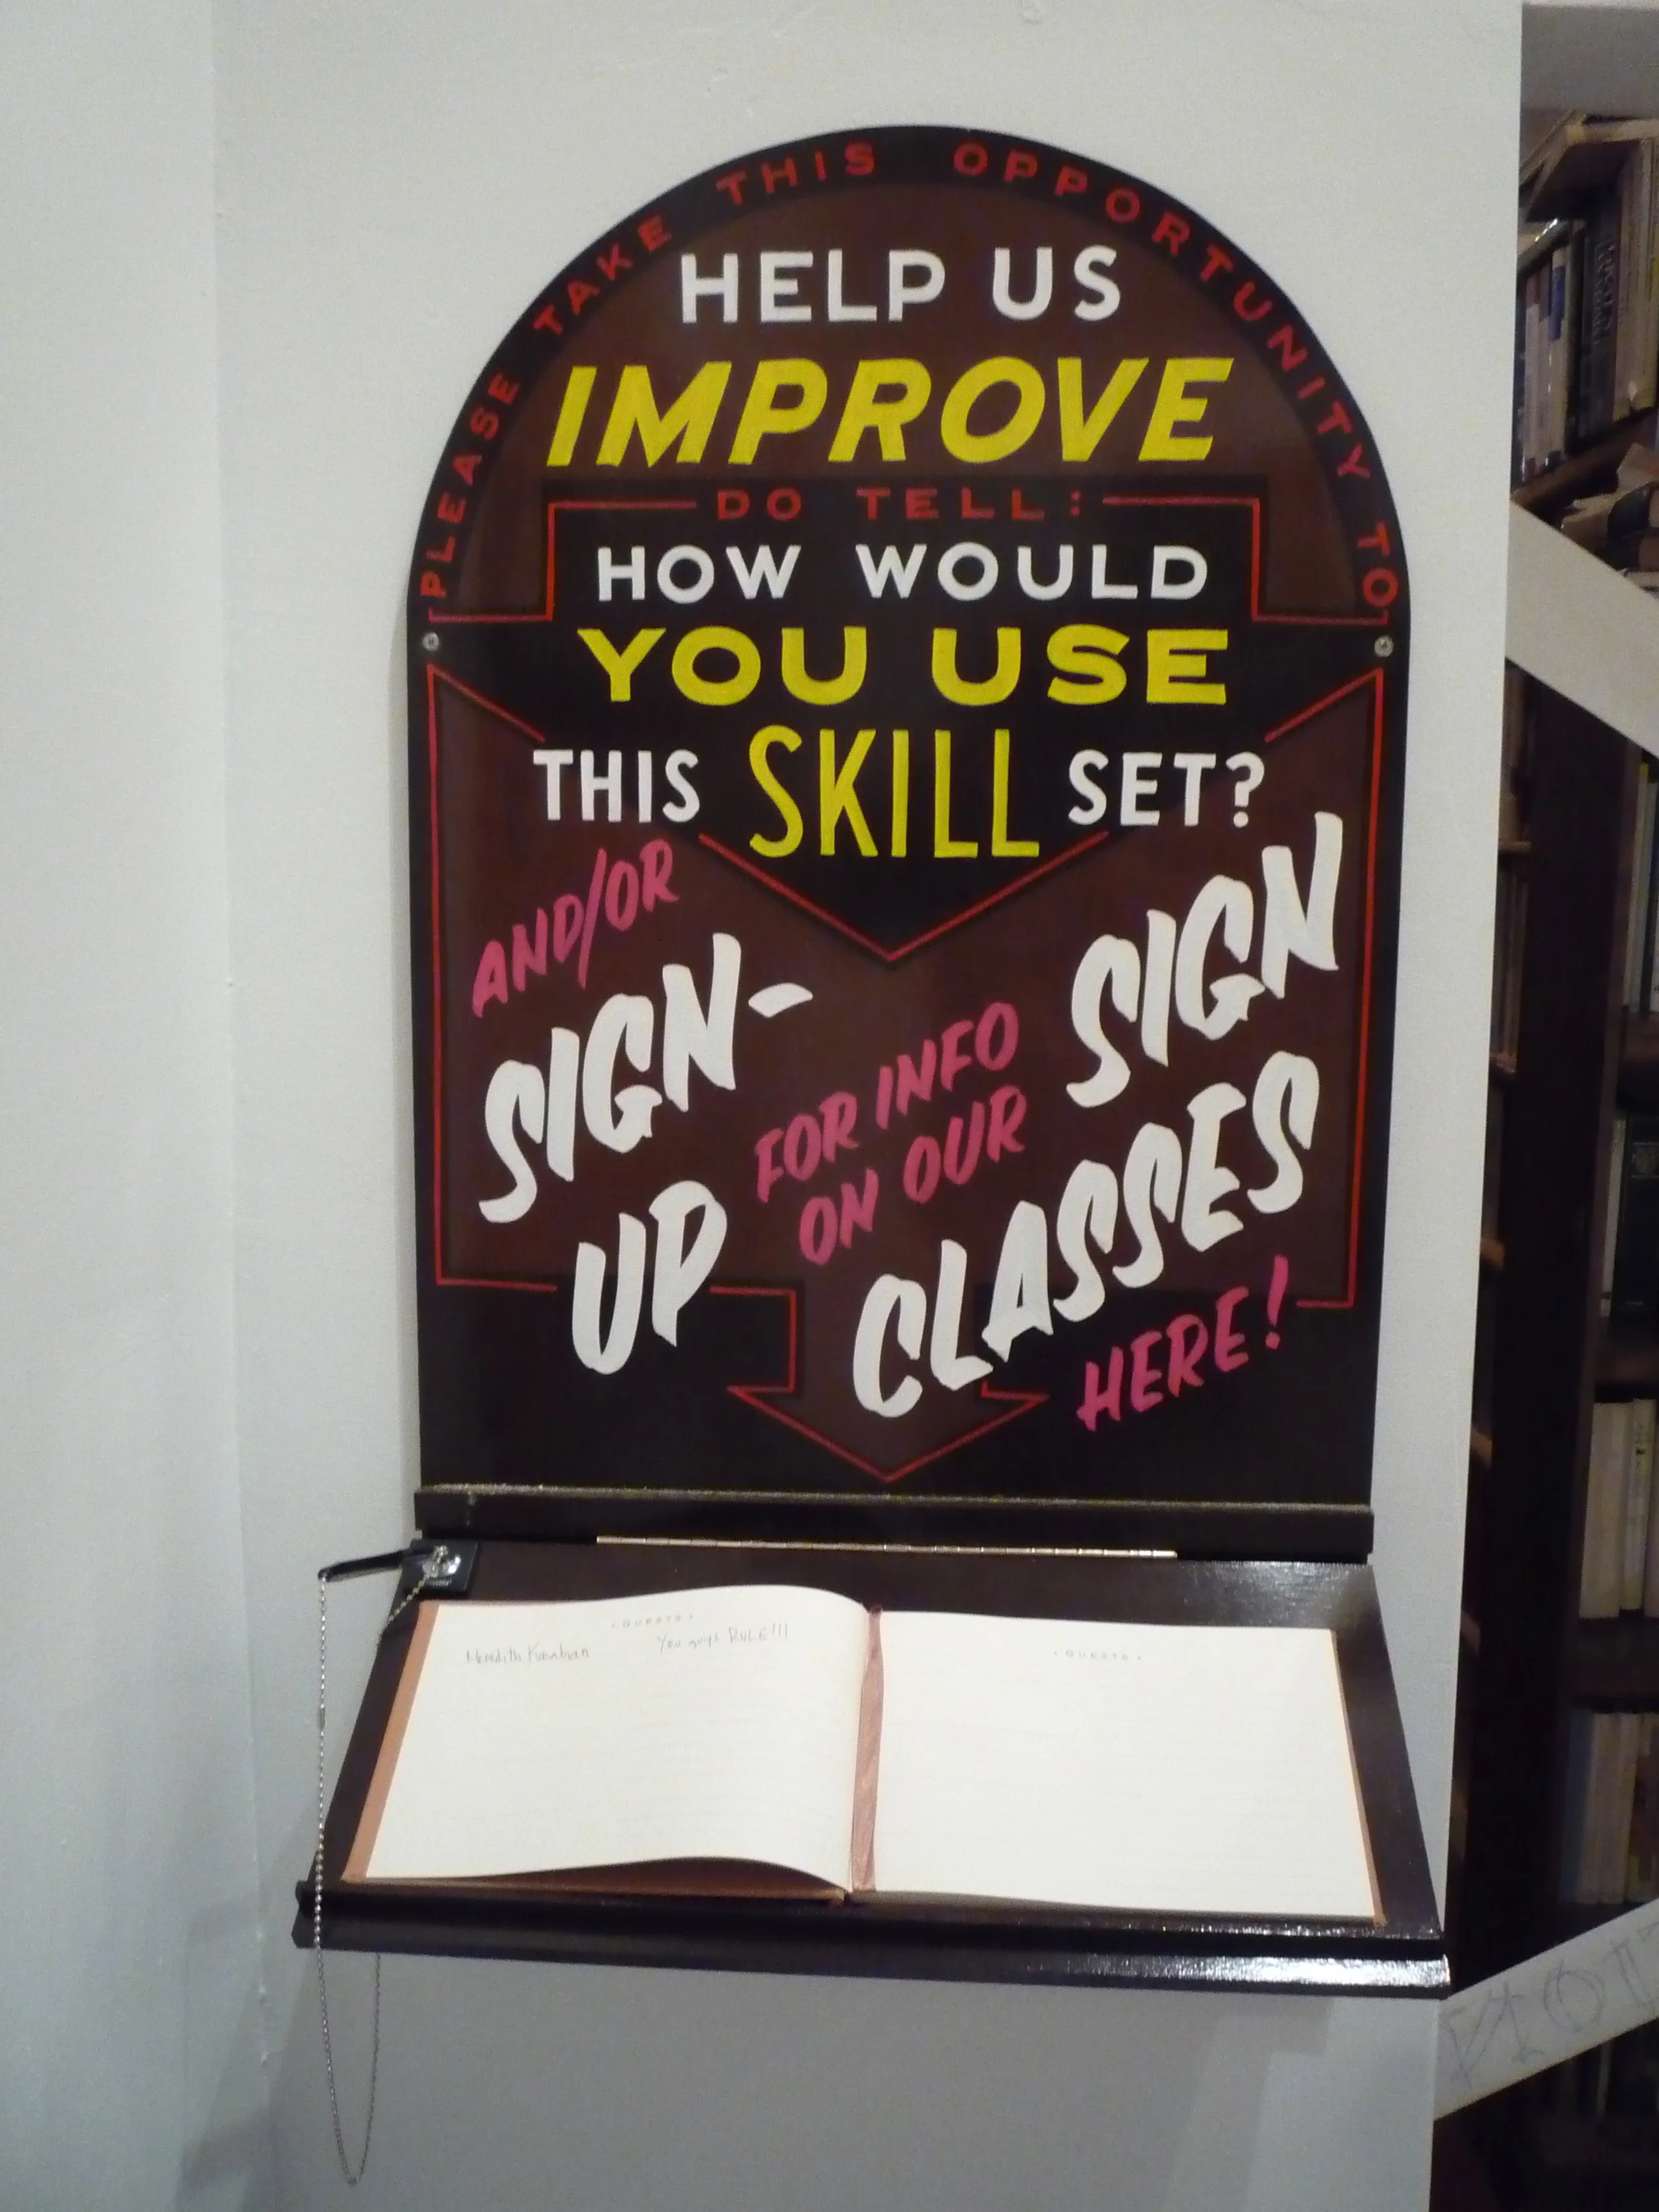 PLEASE TAKE THIS OPPORTUNITY TO
HELP US
IMPROVE
DO TELL:
HOW WOULD
YOU USE
THIS SKILL SET?
AND/OR
SIGN-
UP
FOR INFO
ON OUR
SIGN
CLASSES
HERE!
Meredith
You guys RULE!!!